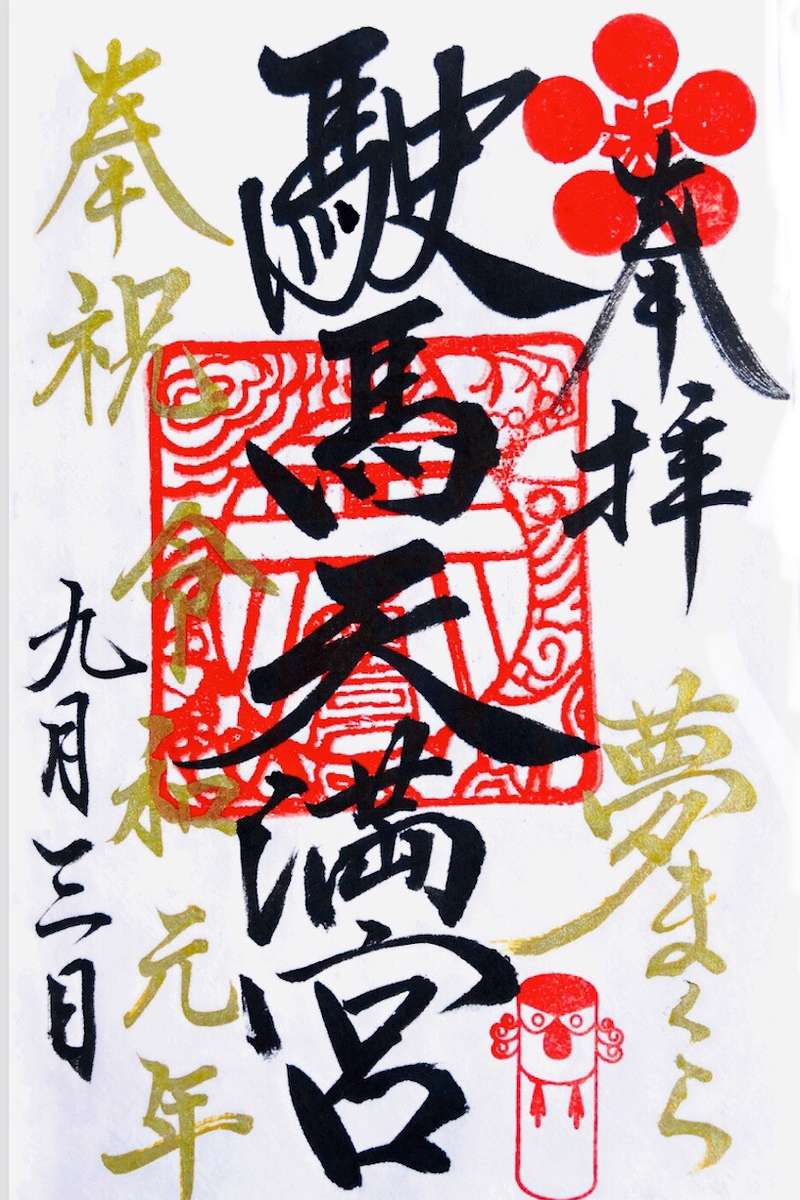 奉拝
夢まくら
駛馬天満宮
奉祝
令和元年
九月三日